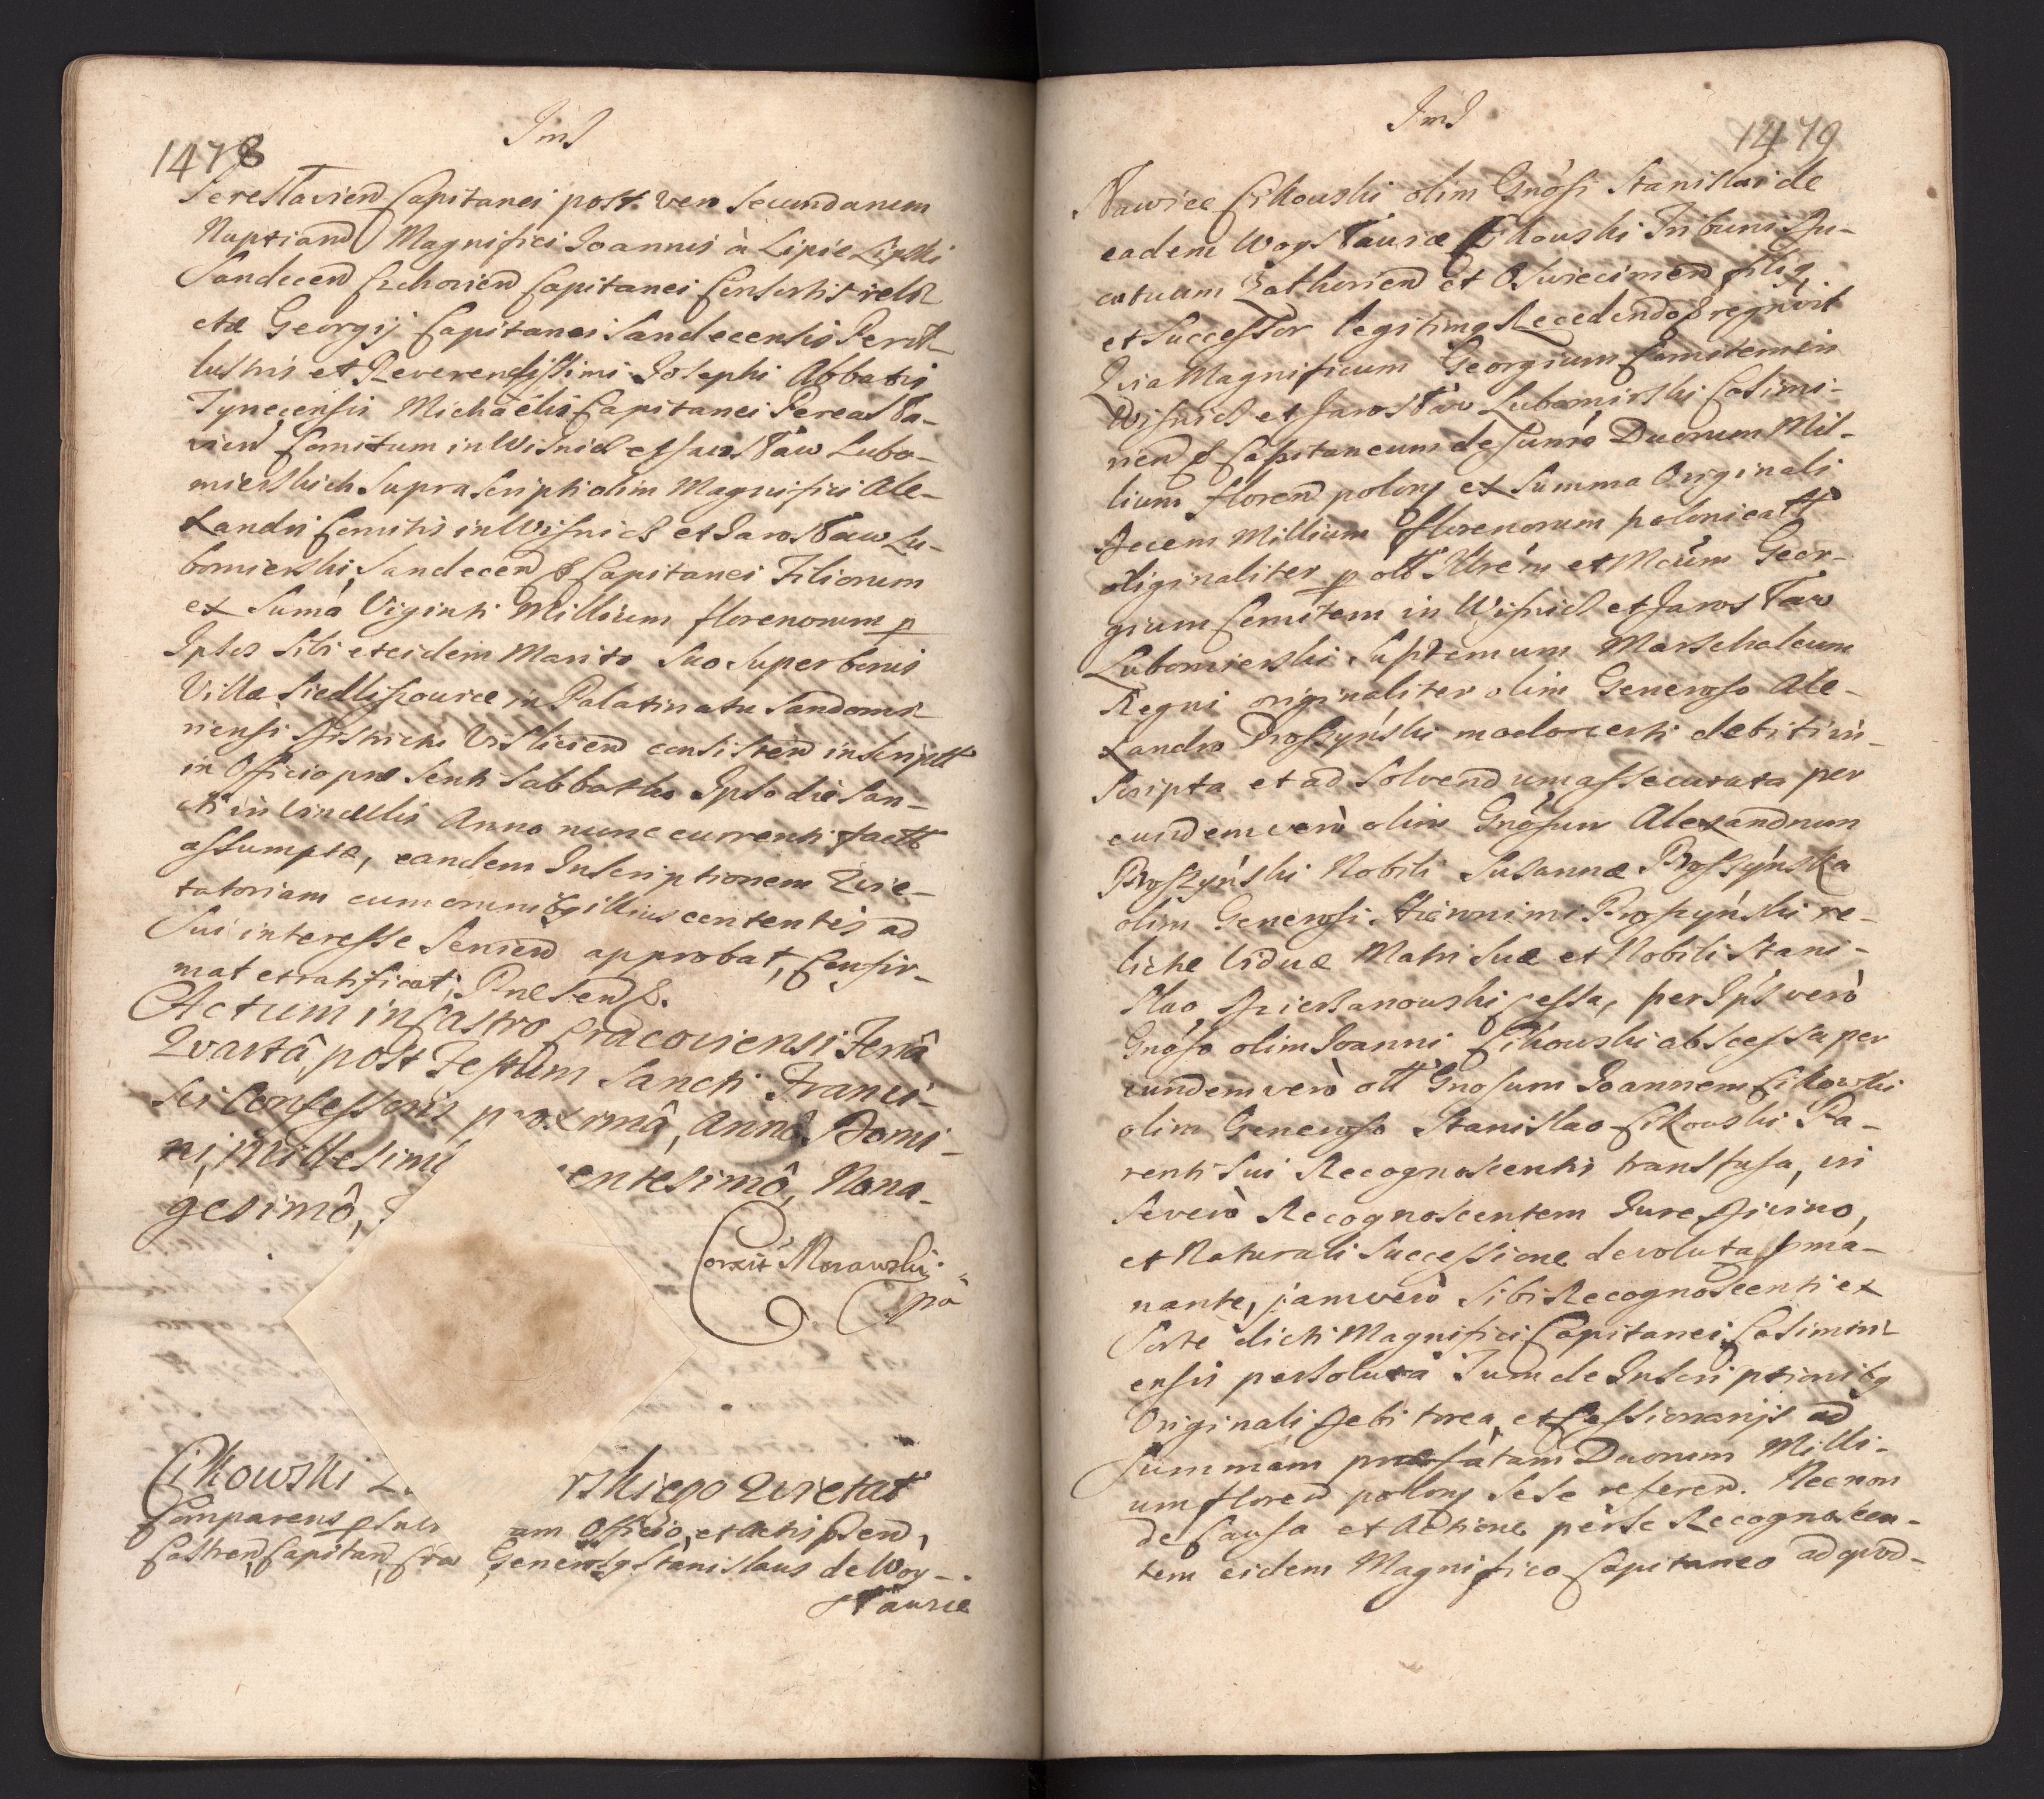 1478
Ind
Pereslavien Capitanei post vero Secundarum
Nuptiarum Magnifici Joannis à Lipie Lipski
Sandecen Czchovien Capitanei Consortis reli-
ctæ Georgij Capitanei Sandecensis Peril-
lustris et Reverendissimi Josephi Abbatis
Tynecensis Michaëlis Capitanei Pereasła-
vien Comitum in Wisnicz et Jarosław Lubo-
mierskich Suprascripti olim Magnifici Ale-
xandri Comitis in Wisnicz et Jarosław Lu-
bomierski, Sandecen & Capitanei Filiorum
ex Suma Viginti Millium florenorum p
Ipsos Sibi et eidem Marito Suo Super bonis
Villæ Siedliszowice in Palatinatu Sandomi-
riensi Districtu Vislicien consisten inscript
in Officio præsenti Sabbatho Ipso die San-
cti in Vinculis Anno nunc currenti fact
assumptæ, eandem Inscriptionem Quie-
tatoriam cum omnibq illius contentis ad
Sui interesse Servien approbat, Confir-
mat et ratificat, Præsen &.
Actum in Castro Cracoviensi Feriâ
Quartâ, post Festum Sancti Franci-
sci Confessoris proximâ, Annô Domi-
ni, Millesimô entesimô, Nona-
gesimô,
Correxit Morawski
mp
Cikowski rskiego Quietat
Comparens psnlr am Officio, et Actis psen,
Castren, Capitan, Crac Generosq Stanislaus de Woy-
sławice
Ind
1479
sławice Cikowski olim Gnosi Stanislai de
eadem Woysławice Cikowski Tribuni Du-
catuum Zathorien et Oswiecimen filiq
et Successor legitimq Recedendo & regnovit
Quia Magnificum Georgium Comitem in
Wisnicz et Jarosław Lubomirski Casimi-
rien & Capitaneum de Suma Duorum Mil-
lium floren polonq ex Summa Originali
Decem Millium florenorum polonicatt
originaliter p olt Illrem et Mcum Geor-
gium Comitem in Wisnicz et Jarosław
Lubomierski Supremum Marschalcum
Regni originaliter olim Generoso Ale-
xandro Proszyński modo certi debiti in-
scripta et ad Solvendum assecurata per
eundem verò olim Gnosum Alexandrum
Proszyński Nobili Susannæ Proszyńska
olim Generosi Hieronimi Proszyński re-
lictæ Viduæ Matri Suæ et Nobili Stani-
slao Dziersanowski cessa, per Ips verò
Gnoso olim Joanni Cikowski abscessa per
eundem verò olt Gnosum Joannem Cikowski
olim Generoso Stanislao Cikowski Pa-
renti Sui Recognoscentis transfusa, in
Se verò Recognoscentem Jure Divino,
et Naturali Successione devoluta & ma-
nante, jam verò Sibi Recognoscenti ex
Sorte dicti Magnifici Capitanei Casimiri-
ensis persoluta Tum de Inscriptionibq
Originali debitorea, et Cessionarijs ad
Summam præfatam Duorum Milli-
um floren polonq Sese referen. Necnon
de Causa et Actione per Se Recognoscen-
tem eidem Magnifico Capitaneo ad quod-